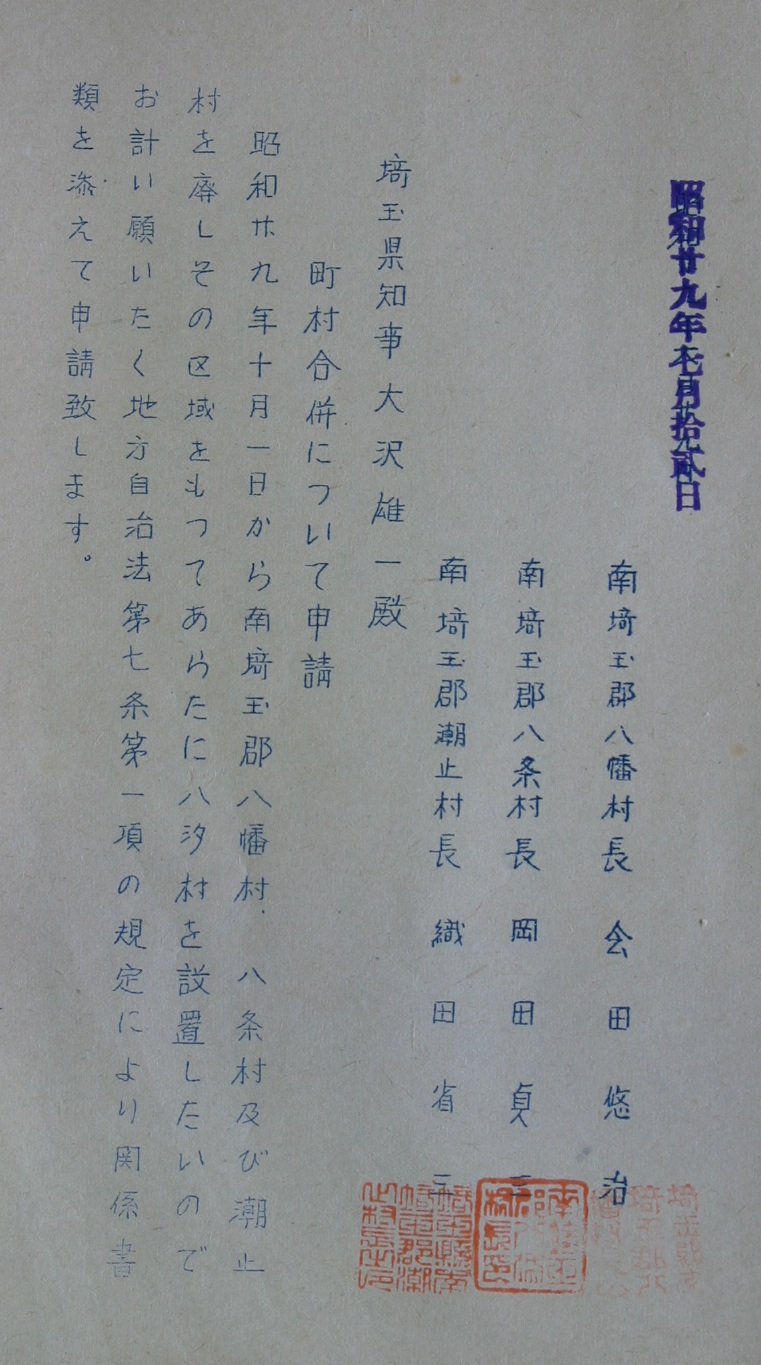 昭和廿九年七月拾貳日
南埼玉郡八幡村長 会田悠治
南埼玉郡八条村長 岡田貞三
南埼玉郡潮止村長 織田省三
埼玉県知事大沢雄一殿
町村合併について申請
昭和廿九年十月一日から南埼玉郡八幡村 八条村及び潮止
村を廃しその区域をもつてあらたに八汐村を設置したいので
お計い願いたく地方自治法第七条第一項の規定により関係書
類を添えて申請致します。